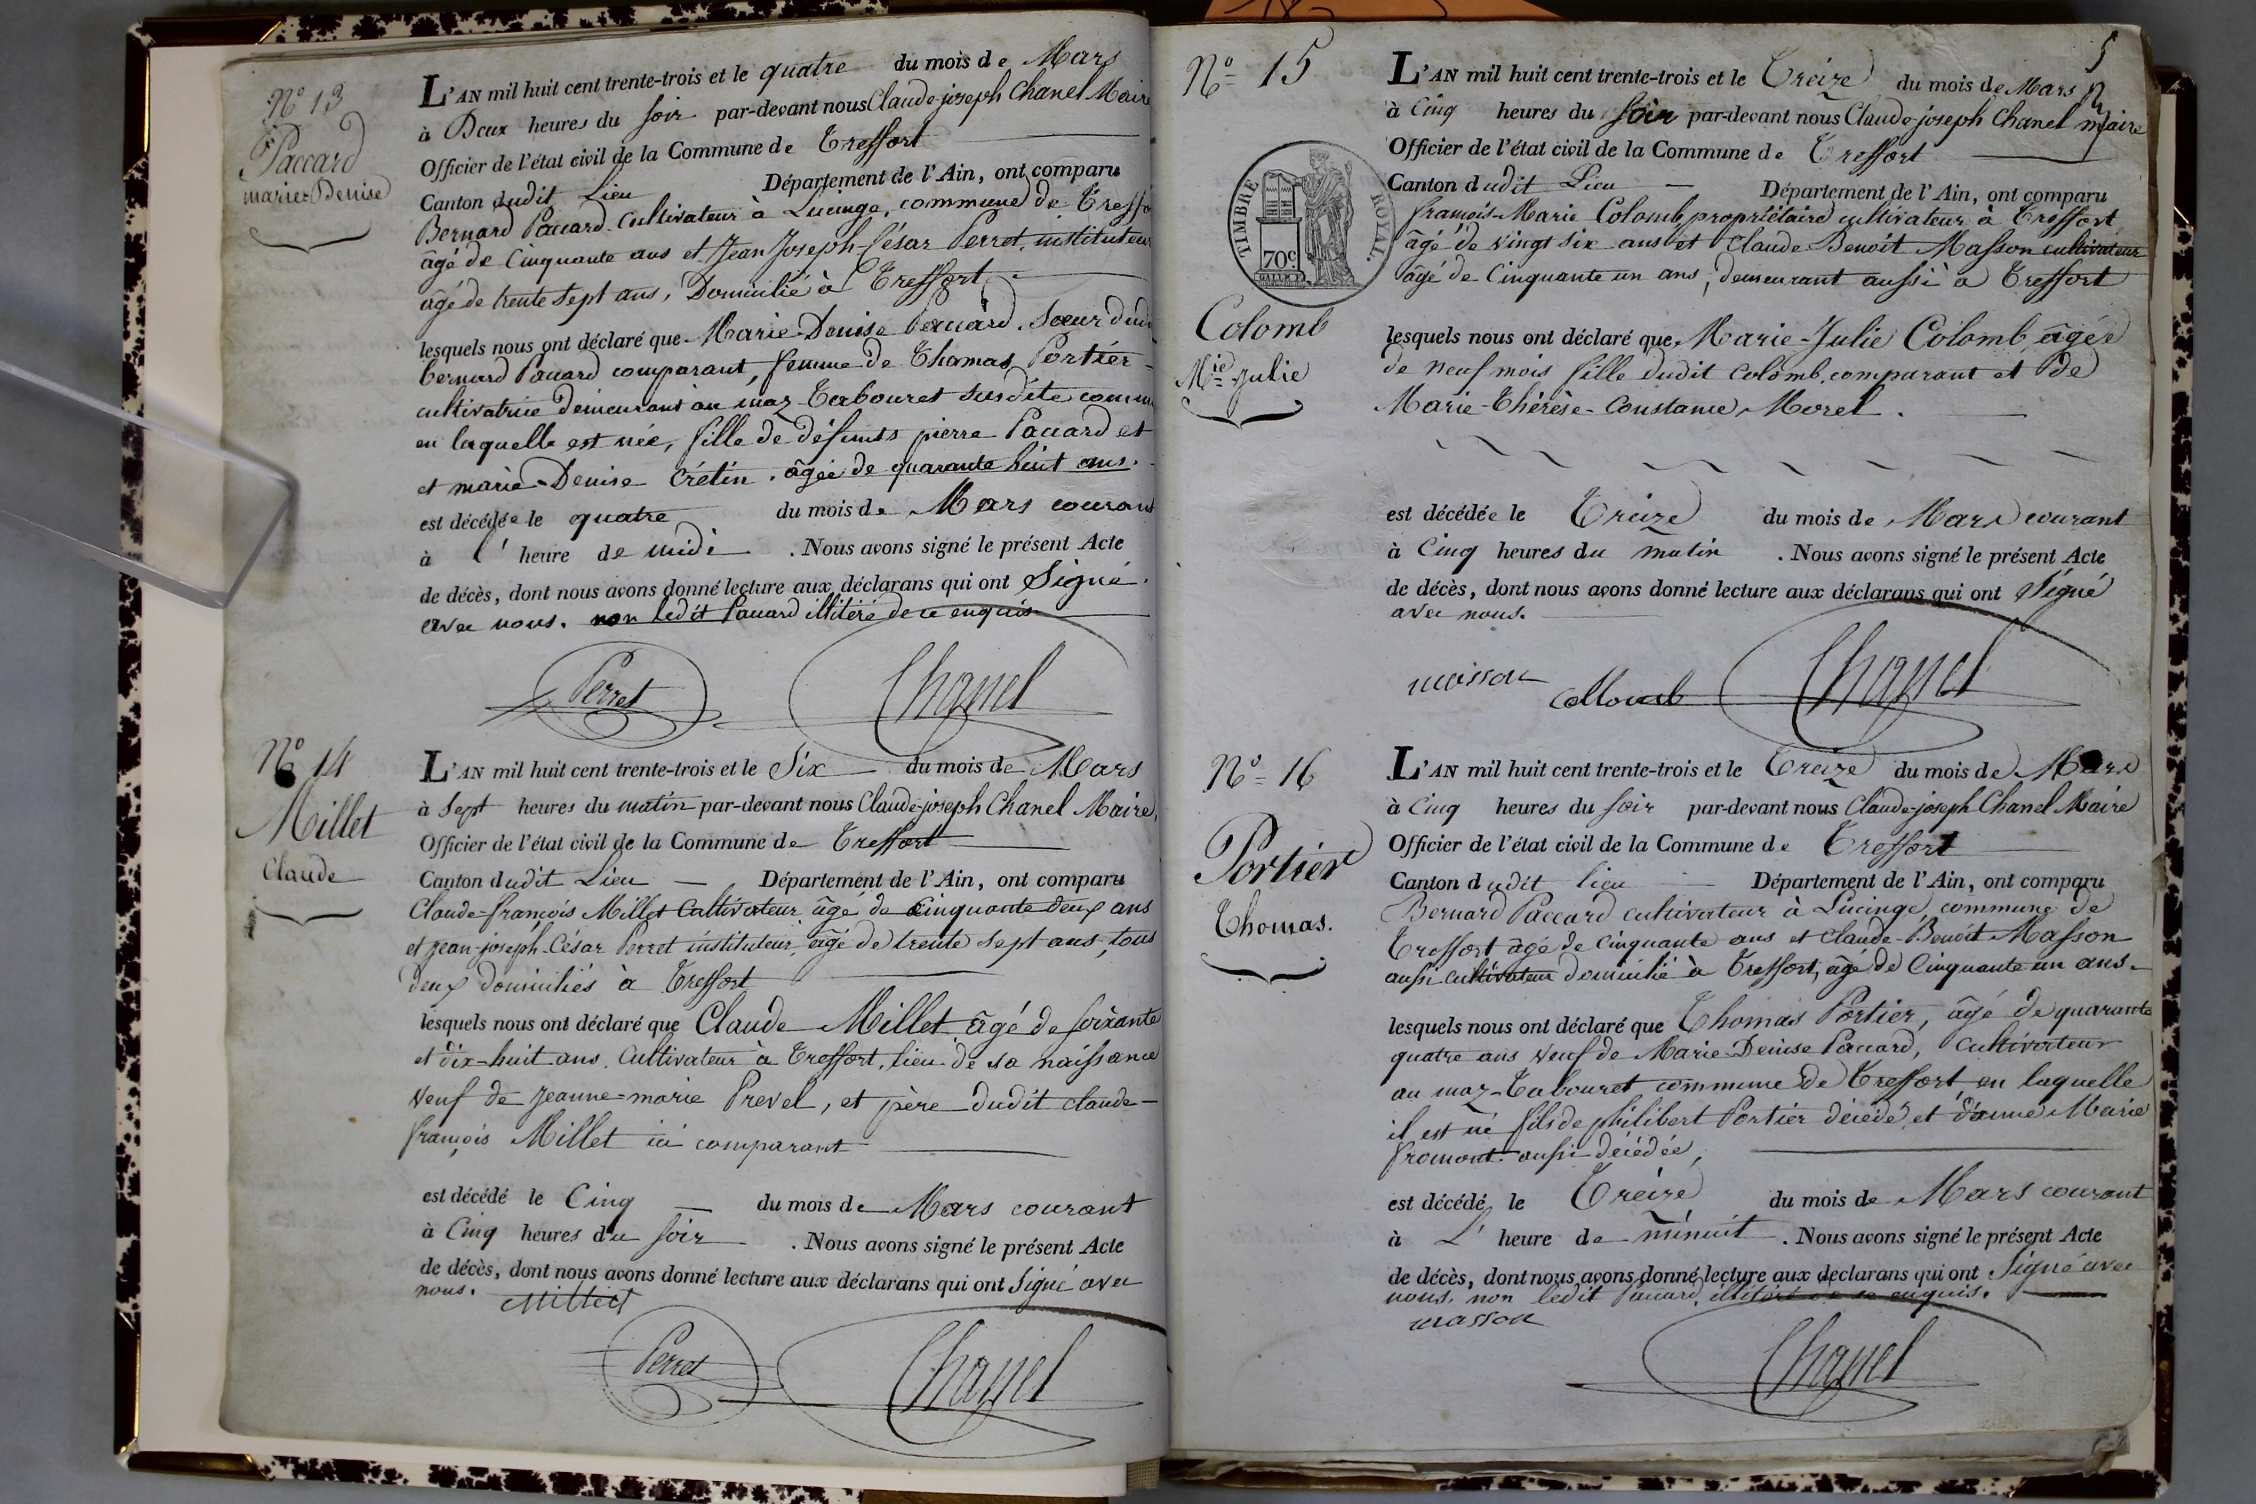 N° 13
Paccard
marie-Denise
L'AN mil huit cent trente-trois et le quatre du mois de Mars
à Deux heures du soir par-devant nous Claude-joseph Chanel Maire
Officier de l'état civil de la Commune de Treffort
Canton dudit Lieu Département de l'Ain, ont comparu
Bernard Paccard cultivateur à Lucinge, commune de Treffo
âgé de Cinquante ans et Jean Joseph-César Perret, instituteur
âgé de trente sept ans, Domicilié à Treffort
lesquels nous ont déclaré que Marie-Denise Paccard, Soeur dudi
bernard Paccard comparant, femme de Thomas Portier
cultivatrice demeurant au maz-Tabouret susdite comm
en laquelle est née, fille de défunts pierre Paccard et
et marie-Denise Crétin, âgée de quarante huit ans.
est décédée le quatre du mois de Mars courant
à l'heure de midi . Nous avons signé le présent Acte
de décès, dont nous avons donné lecture aux déclarans qui ont Signé
avec nous. non ledit Paccard illitéré de ce enquis
Perret Chanel
N° 14
Millet
Claude
L'AN mil huit cent trente-trois et le Six du mois de Mars
à Sept heures du matin par-devant nous Claude-joseph Chanel Maire,
Officier de l'état civil de la Commune de Treffort
Canton dudit Lieu Département de l'Ain, ont comparu
Claude-françois Millet Cultivateur, âgé de cinquante deux ans
et jean-joseph-César Perret instituteur, âgé de trente sept ans, tous
deux domiciliés à Treffort
lesquels nous ont déclaré que Claude Millet âgé de soixante
et dix-huit ans, Cultivateur à Treffort, lieu de sa naissance
veuf de jeanne-marie Prevel, et père dudit claude-
françois Millet ici comparant
est décédé le Cinq du mois de Mars courant
à Cinq heures du soir . Nous avons signé le présent Acte
de décès, dont nous avons donné lecture aux déclarans qui ont Signé avec
nous.
Millet
Perret Chanel
5
N° 15
TIMBRE ROYAL.
70c
Colomb
Mie Julie
L'AN mil huit cent trente-trois et le Treize du mois de Mars
à Cinq heures du soir par-devant nous Claude-joseph Chanel maire
Officier de l'état civil de la Commune de Treffort
Canton dudit Lieu Département de l'Ain, ont comparu
françois-Marie Colomb propriétaire cultivateur à Treffort
âgé de vingt six ans et Claude Benoît Masson cultivateur
âgé de Cinquante un ans, demeurant aussi à Treffort
lesquels nous ont déclaré que Marie-Julie Colomb, âgée
de neuf mois fille dudit Colomb, comparant et de
Marie-Thérèse-Constance Morel.
est décédée le Treize du mois de Mars courant
à Cinq heures du matin . Nous avons signé le présent Acte
de décès, dont nous avons donné lecture aux déclarans qui ont Signé
avec nous.
masson Chanel
N° 16
Portier
Thomas.
L'AN mil huit cent trente-trois et le Treize du mois de Mars
à Cinq heures du soir par-devant nous Claude-joseph Chanel Maire
Officier de l'état civil de la Commune de Treffort
Canton dudit lieu Département de l'Ain, ont comparu
Bernard Paccard cultivateur à Lucinge, commune de
Treffort âgé de Cinquante ans et Claude-Benoît Masson
aussi cultivateur domicilié à Treffort, âgé de Cinquante un ans.
lesquels nous ont déclaré que Thomas Portier, âgé de quarante
quatre ans veuf de Marie-Denise Paccard, Cultivateur
au maz-Tabouret commune de Treffort en laquelle
il est né fils de philibert Portier décédé, et d'anne Marie
fromont aussi décédée,
est décédé le Treize du mois de Mars courant
à L'heure de minuit . Nous avons signé le présent Acte
de décès, dont nous avons donné lecture aux declarans qui ont Signé avec
nous, non ledit Paccard, illitéré de ce enquis.
masson
Chanel